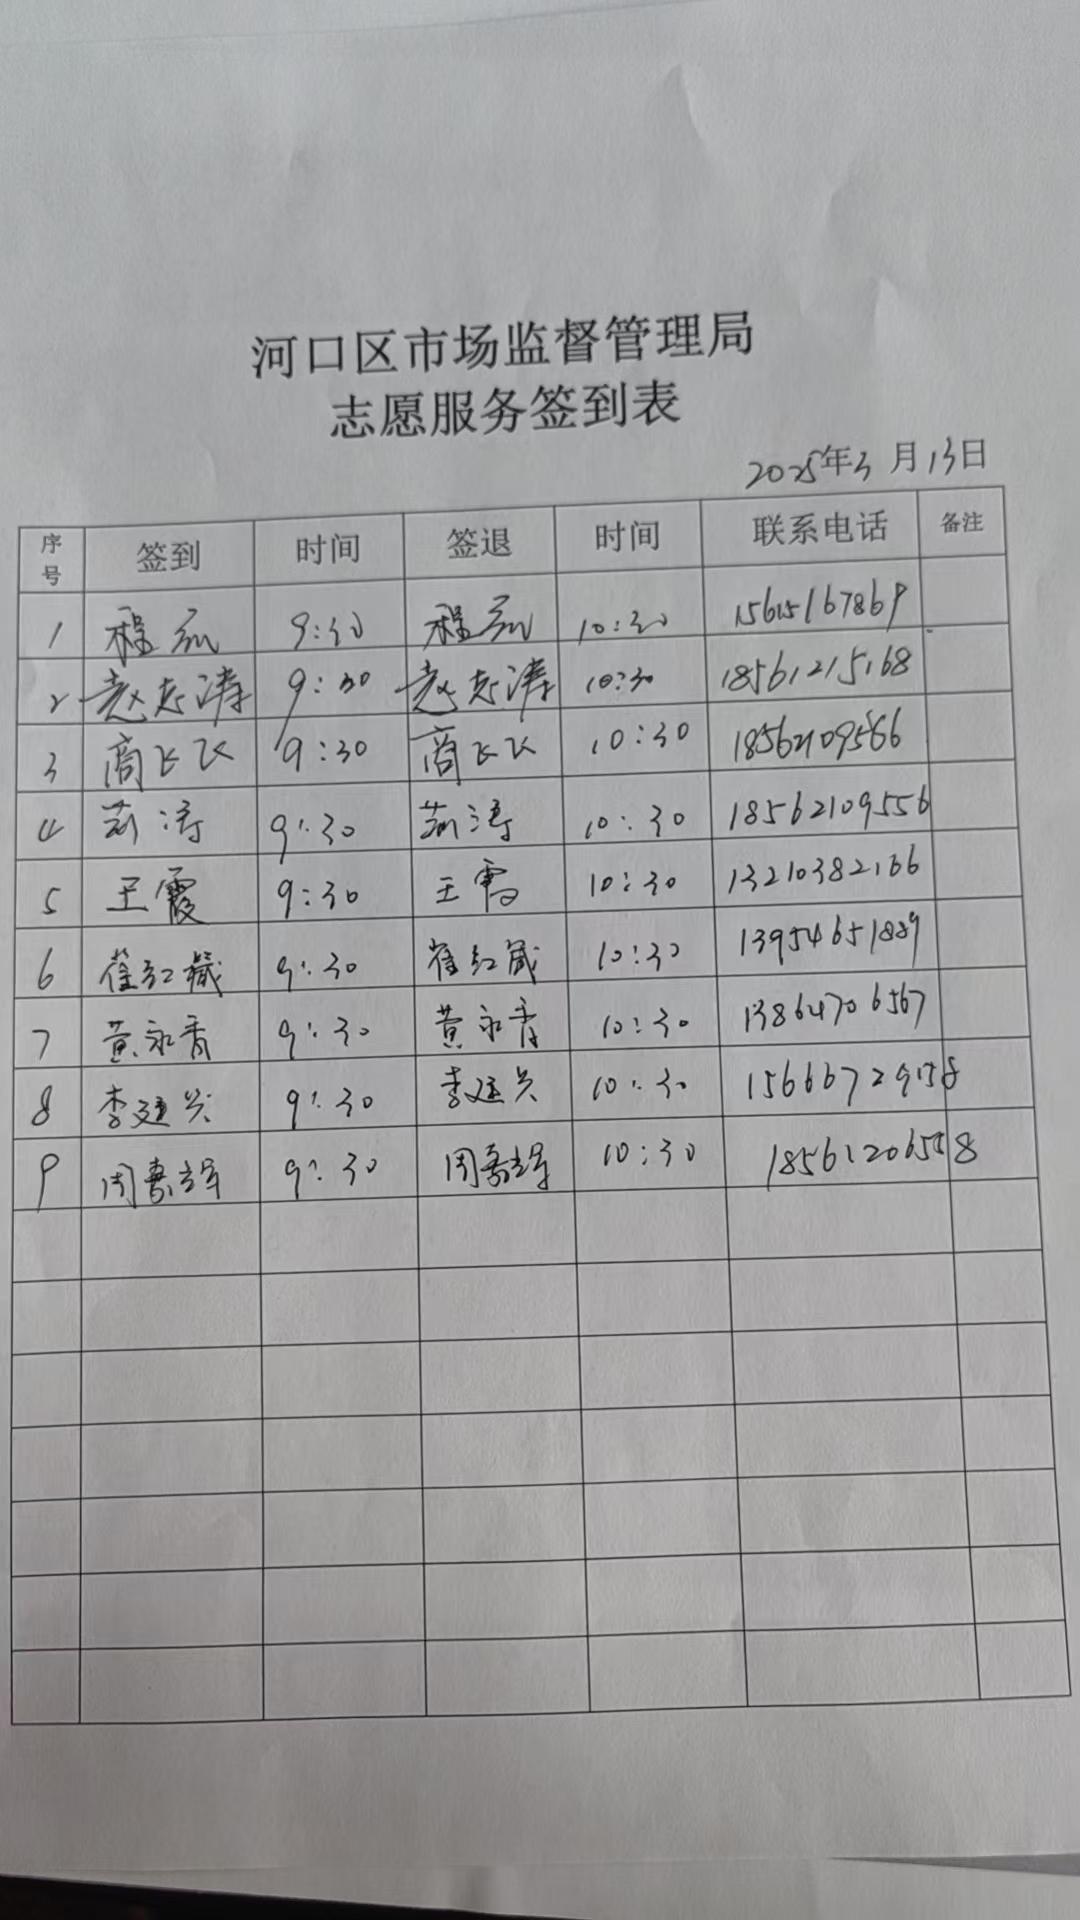 河口区市场监督管理局
志愿服务签到表
2025年3月13日
序号 签到 时间 签退 时间 联系电话 备注
1 程 9:30 程 10:30 15615167869
2 赵志涛 9:30 赵志涛 10:30 18561215168
3 商飞飞 9:30 商飞飞 10:30
4 9:30 10:30 18562109556
5 王霞 9:30 王霞 10:30 13210382166
6 崔红 9:30 崔红 10:30 13954651889
7 黄永香 9:30 黄永香 10:30 13864706567
8 李延兴 9:30 李延兴 10:30
9 周嘉辉 9:30 周嘉辉 10:30